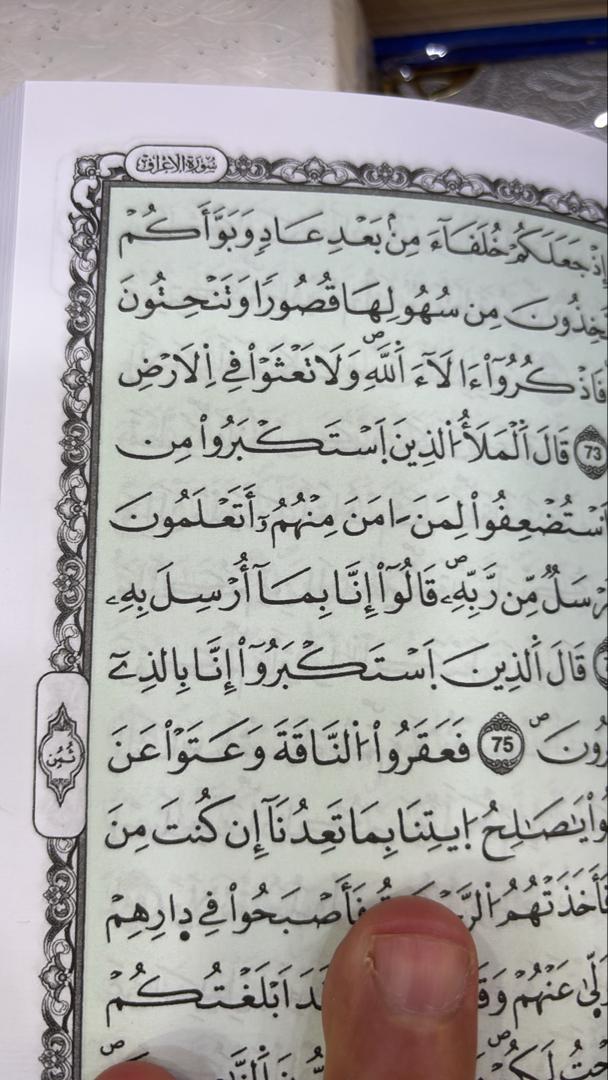 سُورَةُ الاَعْرَافِ
إِذْ جَعَلَكُمْ خُلَفَآءَ مِنۢ بَعْدِ عَادٖ وَبَوَّأَكُمْ
مِن سُهُولِهَا قُصُوراٗ وَتَنْحِتُونَ
فَاذْكُرُوٓاْ ءَالَآءَ اَ۬للَّهِ وَلَا تَعْثَوْاْ فِے اِ۬لَارْضِ
73 قَالَ اَ۬لْمَلَأُ اُ۬لذِينَ اَ۪سْتَكْبَرُواْ مِن
اَ۟سْتُضْعِفُواْ لِمَنَ اٰمَنَ مِنْهُمُۥٓ أَتَعْلَمُونَ
مِّن رَّبِّهِۦ قَالُوٓاْ إِنَّا بِمَآ أُرْسِلَ بِهِۦ
قَالَ اَ۬لذِينَ اَ۪سْتَكْبَرُوٓاْ إِنَّا بِالذِےٓ
75 فَعَقَرُواْ اُ۬لنَّاقَةَ وَعَتَوْاْ عَنَ
ثُمُن
يَٰصَٰلِحُ اُ۪يتِنَا بِمَا تَعِدُنَآ إِن كُنتَ مِنَ
فَأَخَذَتْهُمُ فَأَصْبَحُواْ فِے دِارِهِمْ
عَنْهُمْ اَبْلَغْتُكُمْ